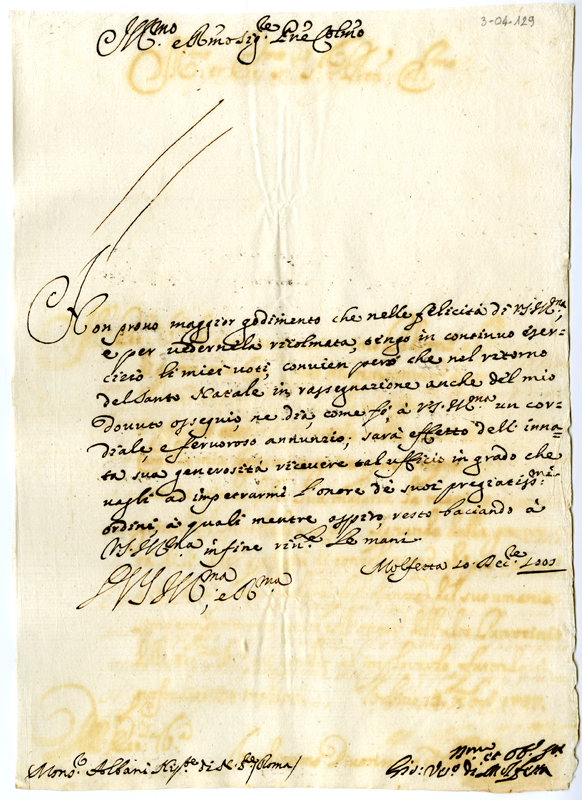 3-04-129
Ill.mo e R.mo Sig.re P.rne Col.mo
Non prouo maggior godimento che nelle felicità di V.S. Ill.ma,
e per uedernela ricolmata, tengo in continuo eser=
cizio li miei uoti, conuien però che nel ritorno
del Santo Natale in rassegnazione anche del mio
douuto ossequio, ne dia, come fo, à V.S. Ill.ma un cor=
diale, e feruoroso annunzio; sarà effetto dell'inna=
ta sua generosità riceuere tal uffizio in grado che
uagli ad impetrarmi l'onore de suoi pregiatiss.mi
ordini, à quali mentre aspiro, resto baciando à
V.S. Ill.ma in fine riu.te le mani
Molfetta 10 Dec.e
D V S Ill.ma, e R.ma
Mons.r Albani di N. S.re (Roma)
et Obb.
Gio: Vesc.o di Molfetta